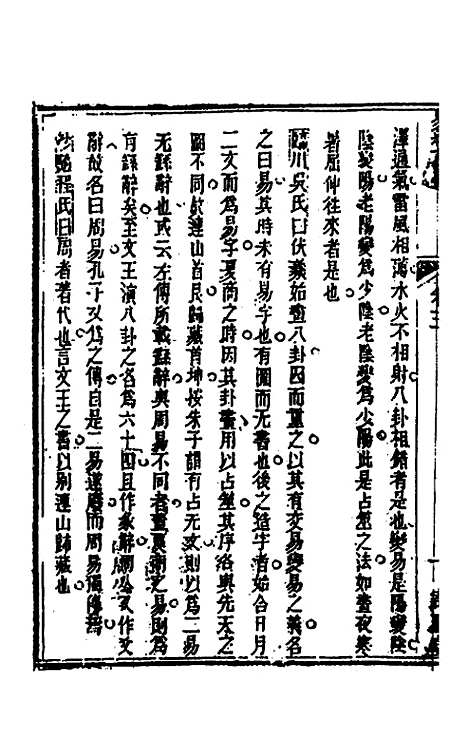 澤通氣雷風相薄水火不相射八卦相錯者是也變易是陽變陰
陰變陽老陽變爲少陰老陰變爲少陽此是占筮之法如晝夜寒
暑屈伸往來者是也
臨川吳氏曰伏羲始畫八卦因而重之以其有交易變易之義名
之曰易其時未有易字也有圖而无書也後之造字者始合日月
二文而爲易字夏商之時因其卦畫用以占筮其序洛與先天之
圖不同故連山首艮歸藏首坤按朱子謂有占无文則以爲二易
无繇辭也或云左傳所載繇辭與周易不同者畫夏商之易則爲
有繇辭矣至文王演八卦之名爲六十四且作彖辭周公又作文
辭故名曰周易孔子又爲之傳自是二易遂廢而周易獨傳
程氏曰周者著代也言文王之書以別連山歸藏也